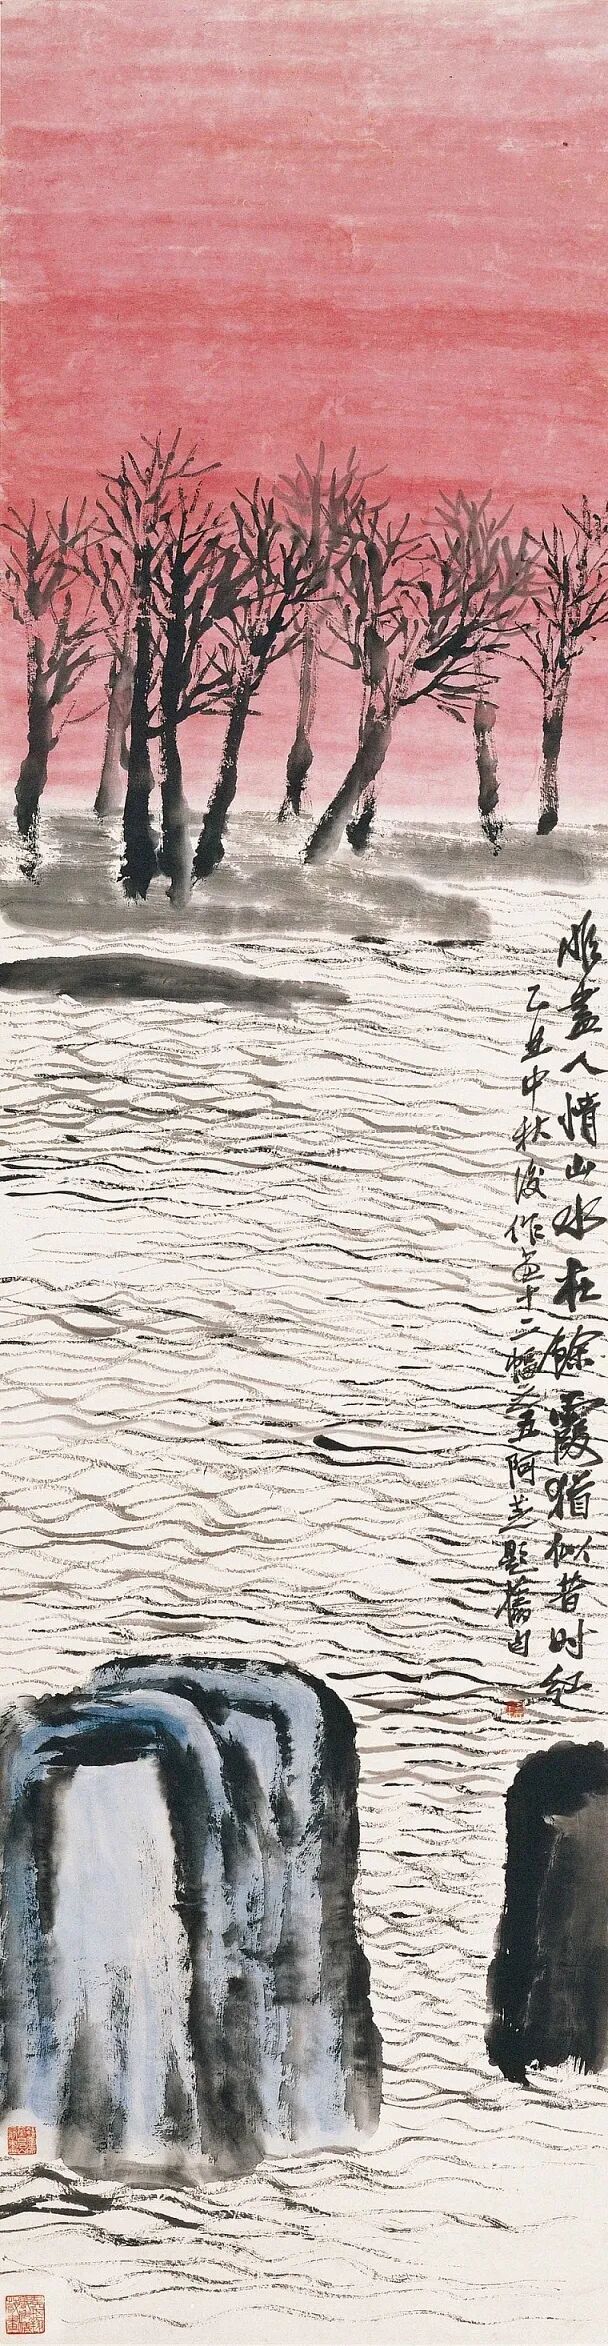 虽尽人情山水在馀霞犹似昔时红
乙丑中秋后作画十二幅之五阿芝题旧句